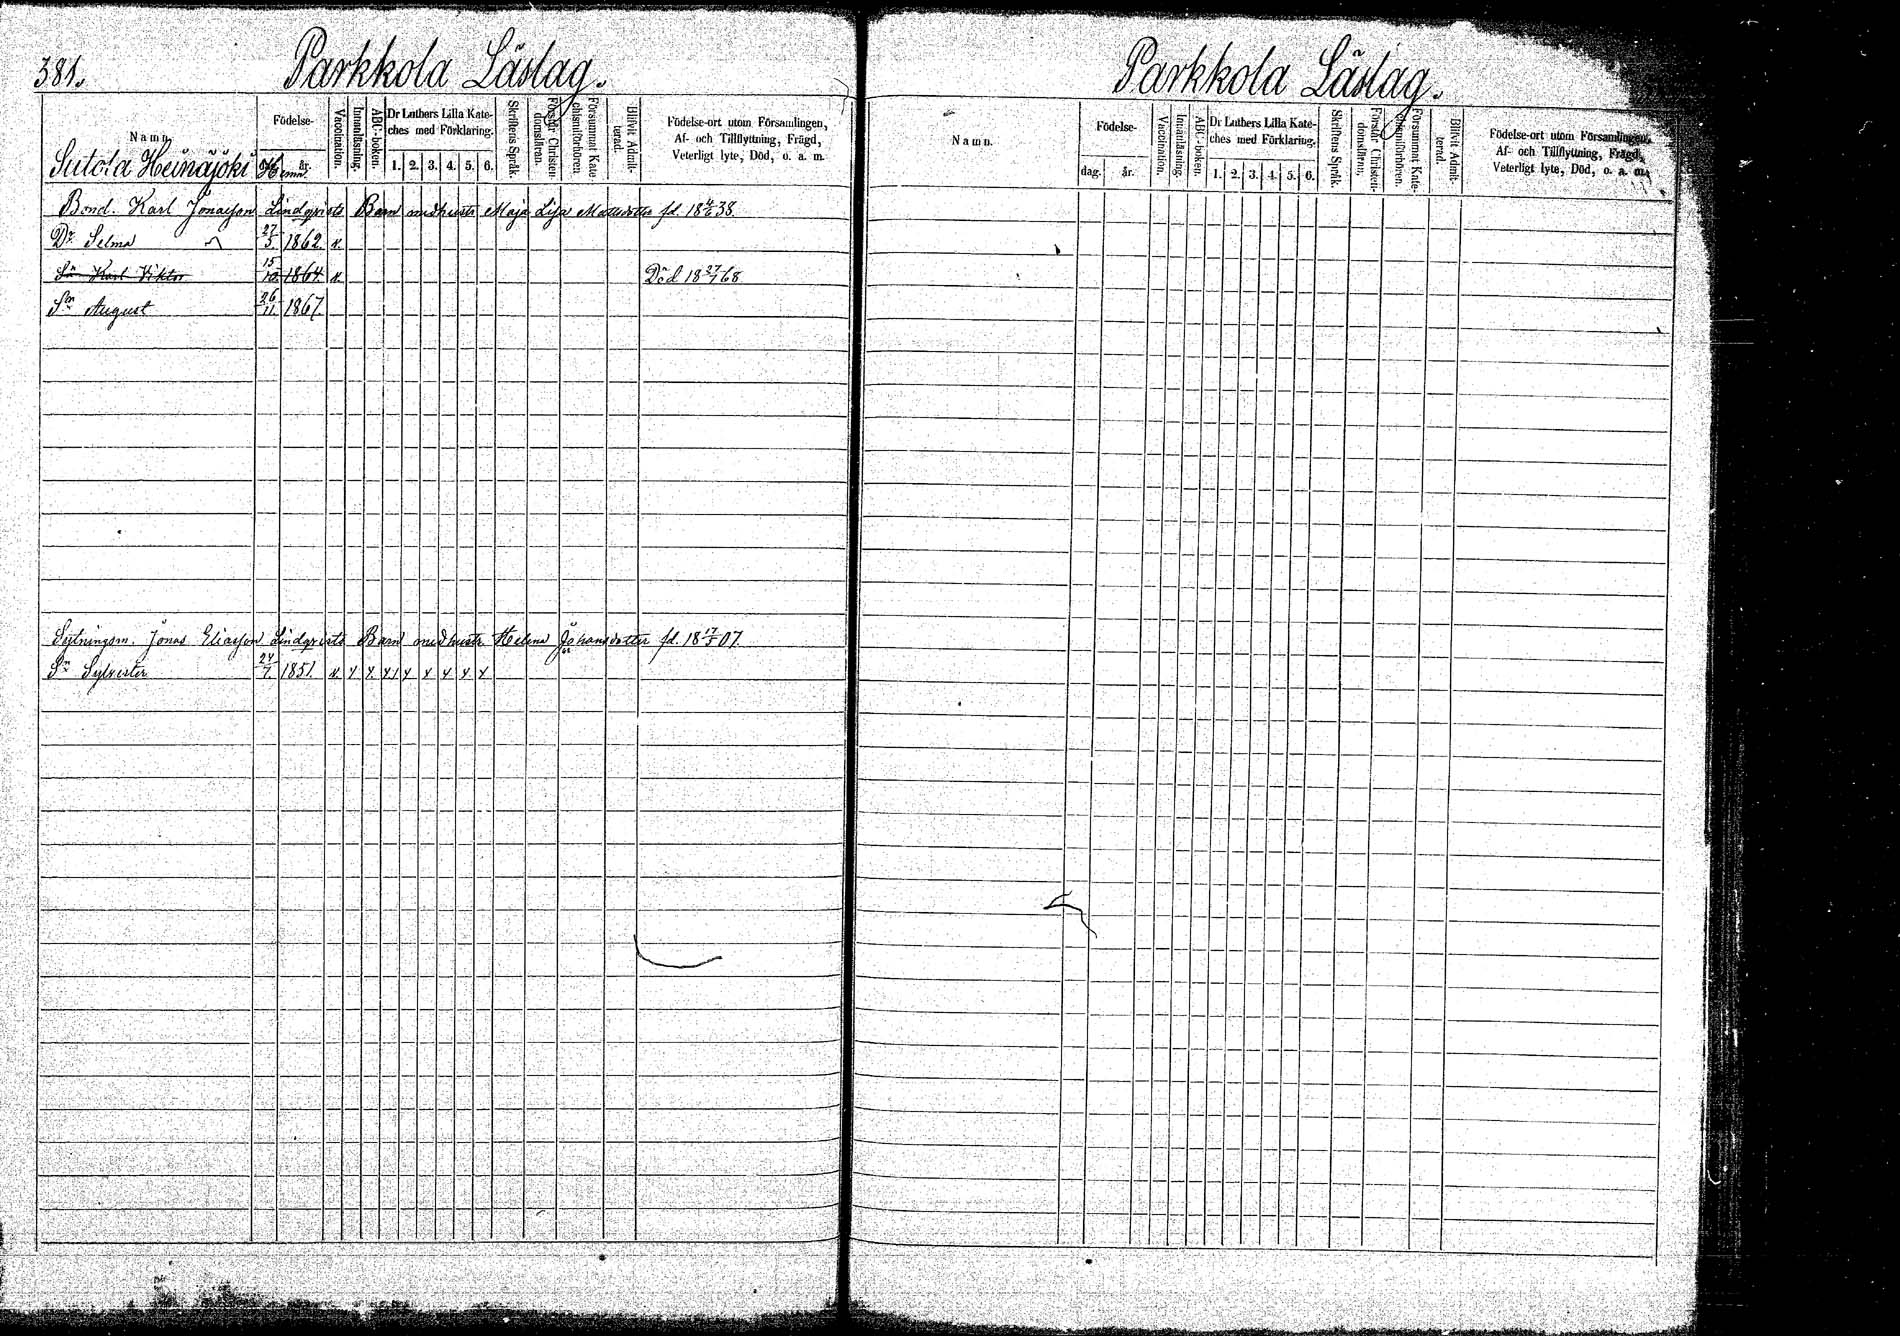 381.
Parkkola Läslag.
Namn.
Födelse-
år.
Vaccination.
Innanläsning.
ABC-boken.
Dr Luthers Lilla Kate-
ches med Förklaring.
1. 2. 3. 4. 5. 6.
Skriftens Språk.
Förstår Christen-
domsläran.
Försummat Kate-
chismiförhören.
Blifvit Admit-
terad.
Födelse-ort utom Församlingen,
Af- och Tillflyttning, Frägd,
Veterligt lyte, Död, o. a. m.
Sutola Heinäjoki Hemm.
Bond. Karl Jonasson Lindqvists Barn med hustr. Maja Lisa Mattsdotter fd. 18 4/6 38.
Dr Selma 27/5 1862 v.
Sn Karl Viktor 15/10 1864. v. Död 18 27/1 68
Sn August 26/11. 1867.
Sytningsm. Jonas Eliasson Lindqvists Barn med hustr. Helena Johansdotter fd. 18 17/5 07.
Sn Sylvester 24/7. 1851. v.
Parkkola Läslag.
Namn.
Födelse-
dag. år.
Vaccination.
Innanläsning.
ABC-boken.
Dr Luthers Lilla Kate-
ches med Förklaring.
1. 2. 3. 4. 5. 6.
Skriftens Språk.
Förstår Christen-
domsläran.
Försummat Kate-
chismiförhören.
Blifvit Admit-
terad.
Födelse-ort utom Församlingen,
Af- och Tillflyttning, Frägd,
Veterligt lyte, Död, o. a. m.